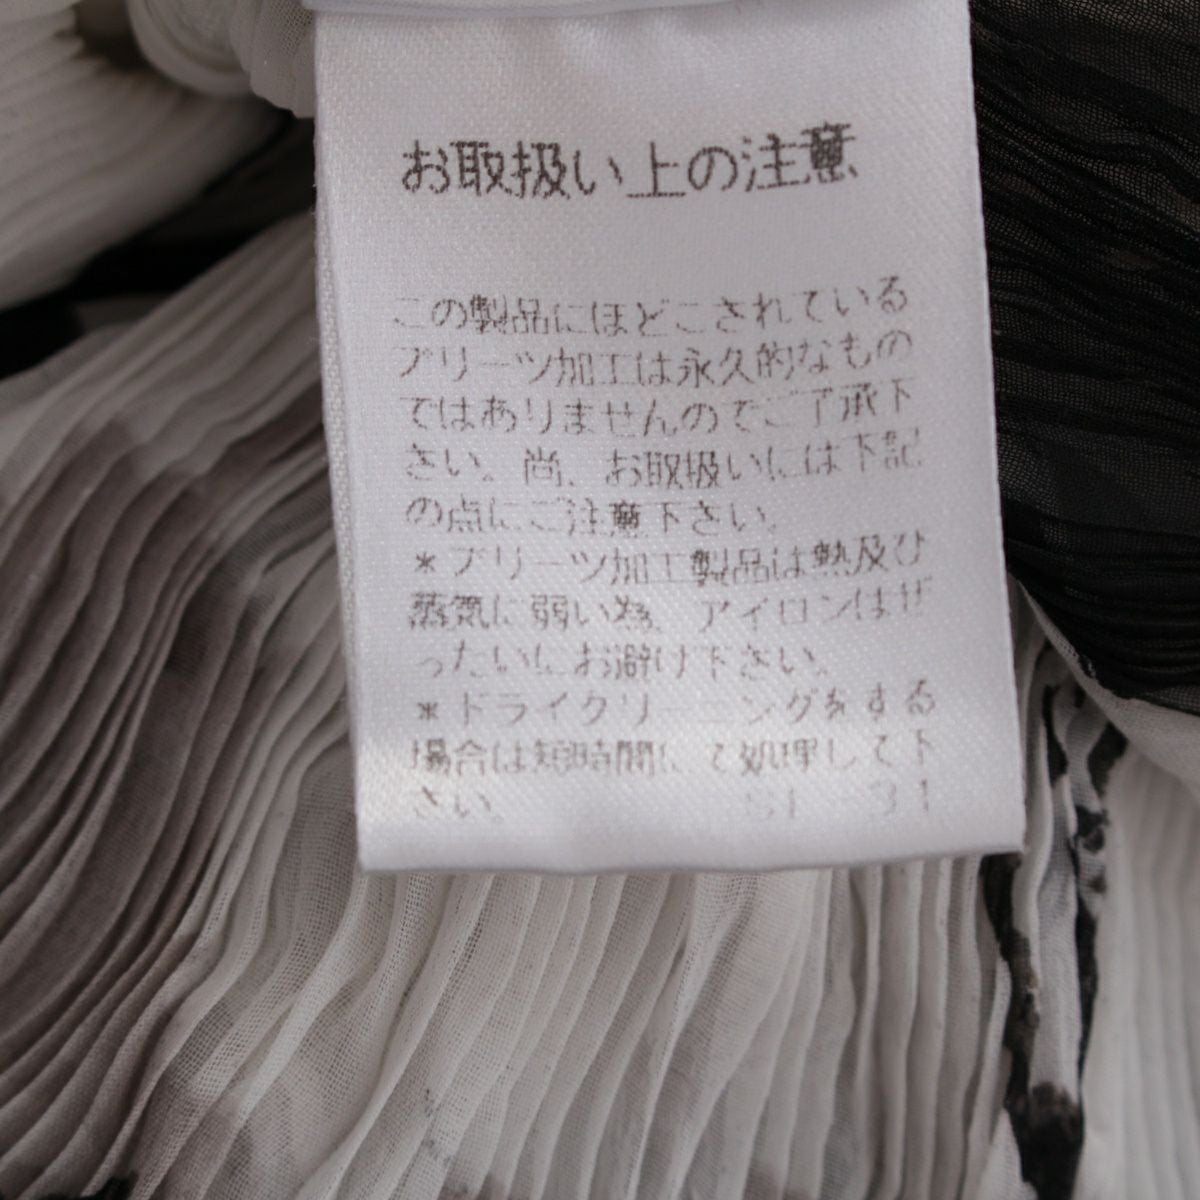 お取扱い上の注意
この製品にほどこされている
プリーツ加工は永久的なもの
ではありませんのでご了承下
さい。尚、お取扱いには下記
の点にご注意下さい。
*プリーツ加工製品は熱及び
蒸気に弱い為、アイロンはぜ
ったいにお避け下さい。
*ドライクリーニングをする
場合は短時間にて処理して下
さい。